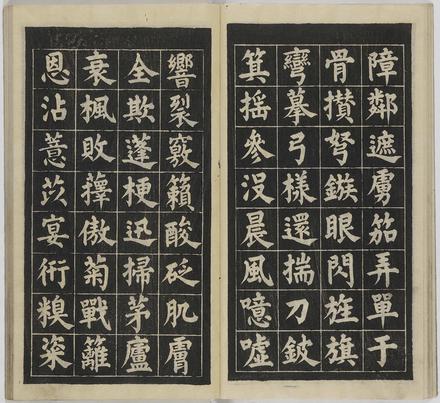 障鄰遮虜笳弄單于
骨攢弩鏃眼閃旌旗
彎摹弓樣還揣刀鈹
箕搖參沒晨風噫噓
響裂竅籟酸砭肌膚
全欺蓬梗迅掃茅廬
衰楓敗蘀傲菊戰籬
恩沾薏苡宴衎糗粢